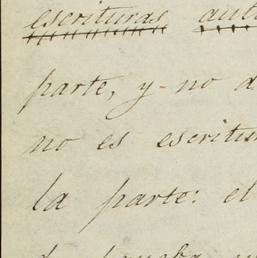 escrituras aut
parte, y no d
no es escritu
la parte: el